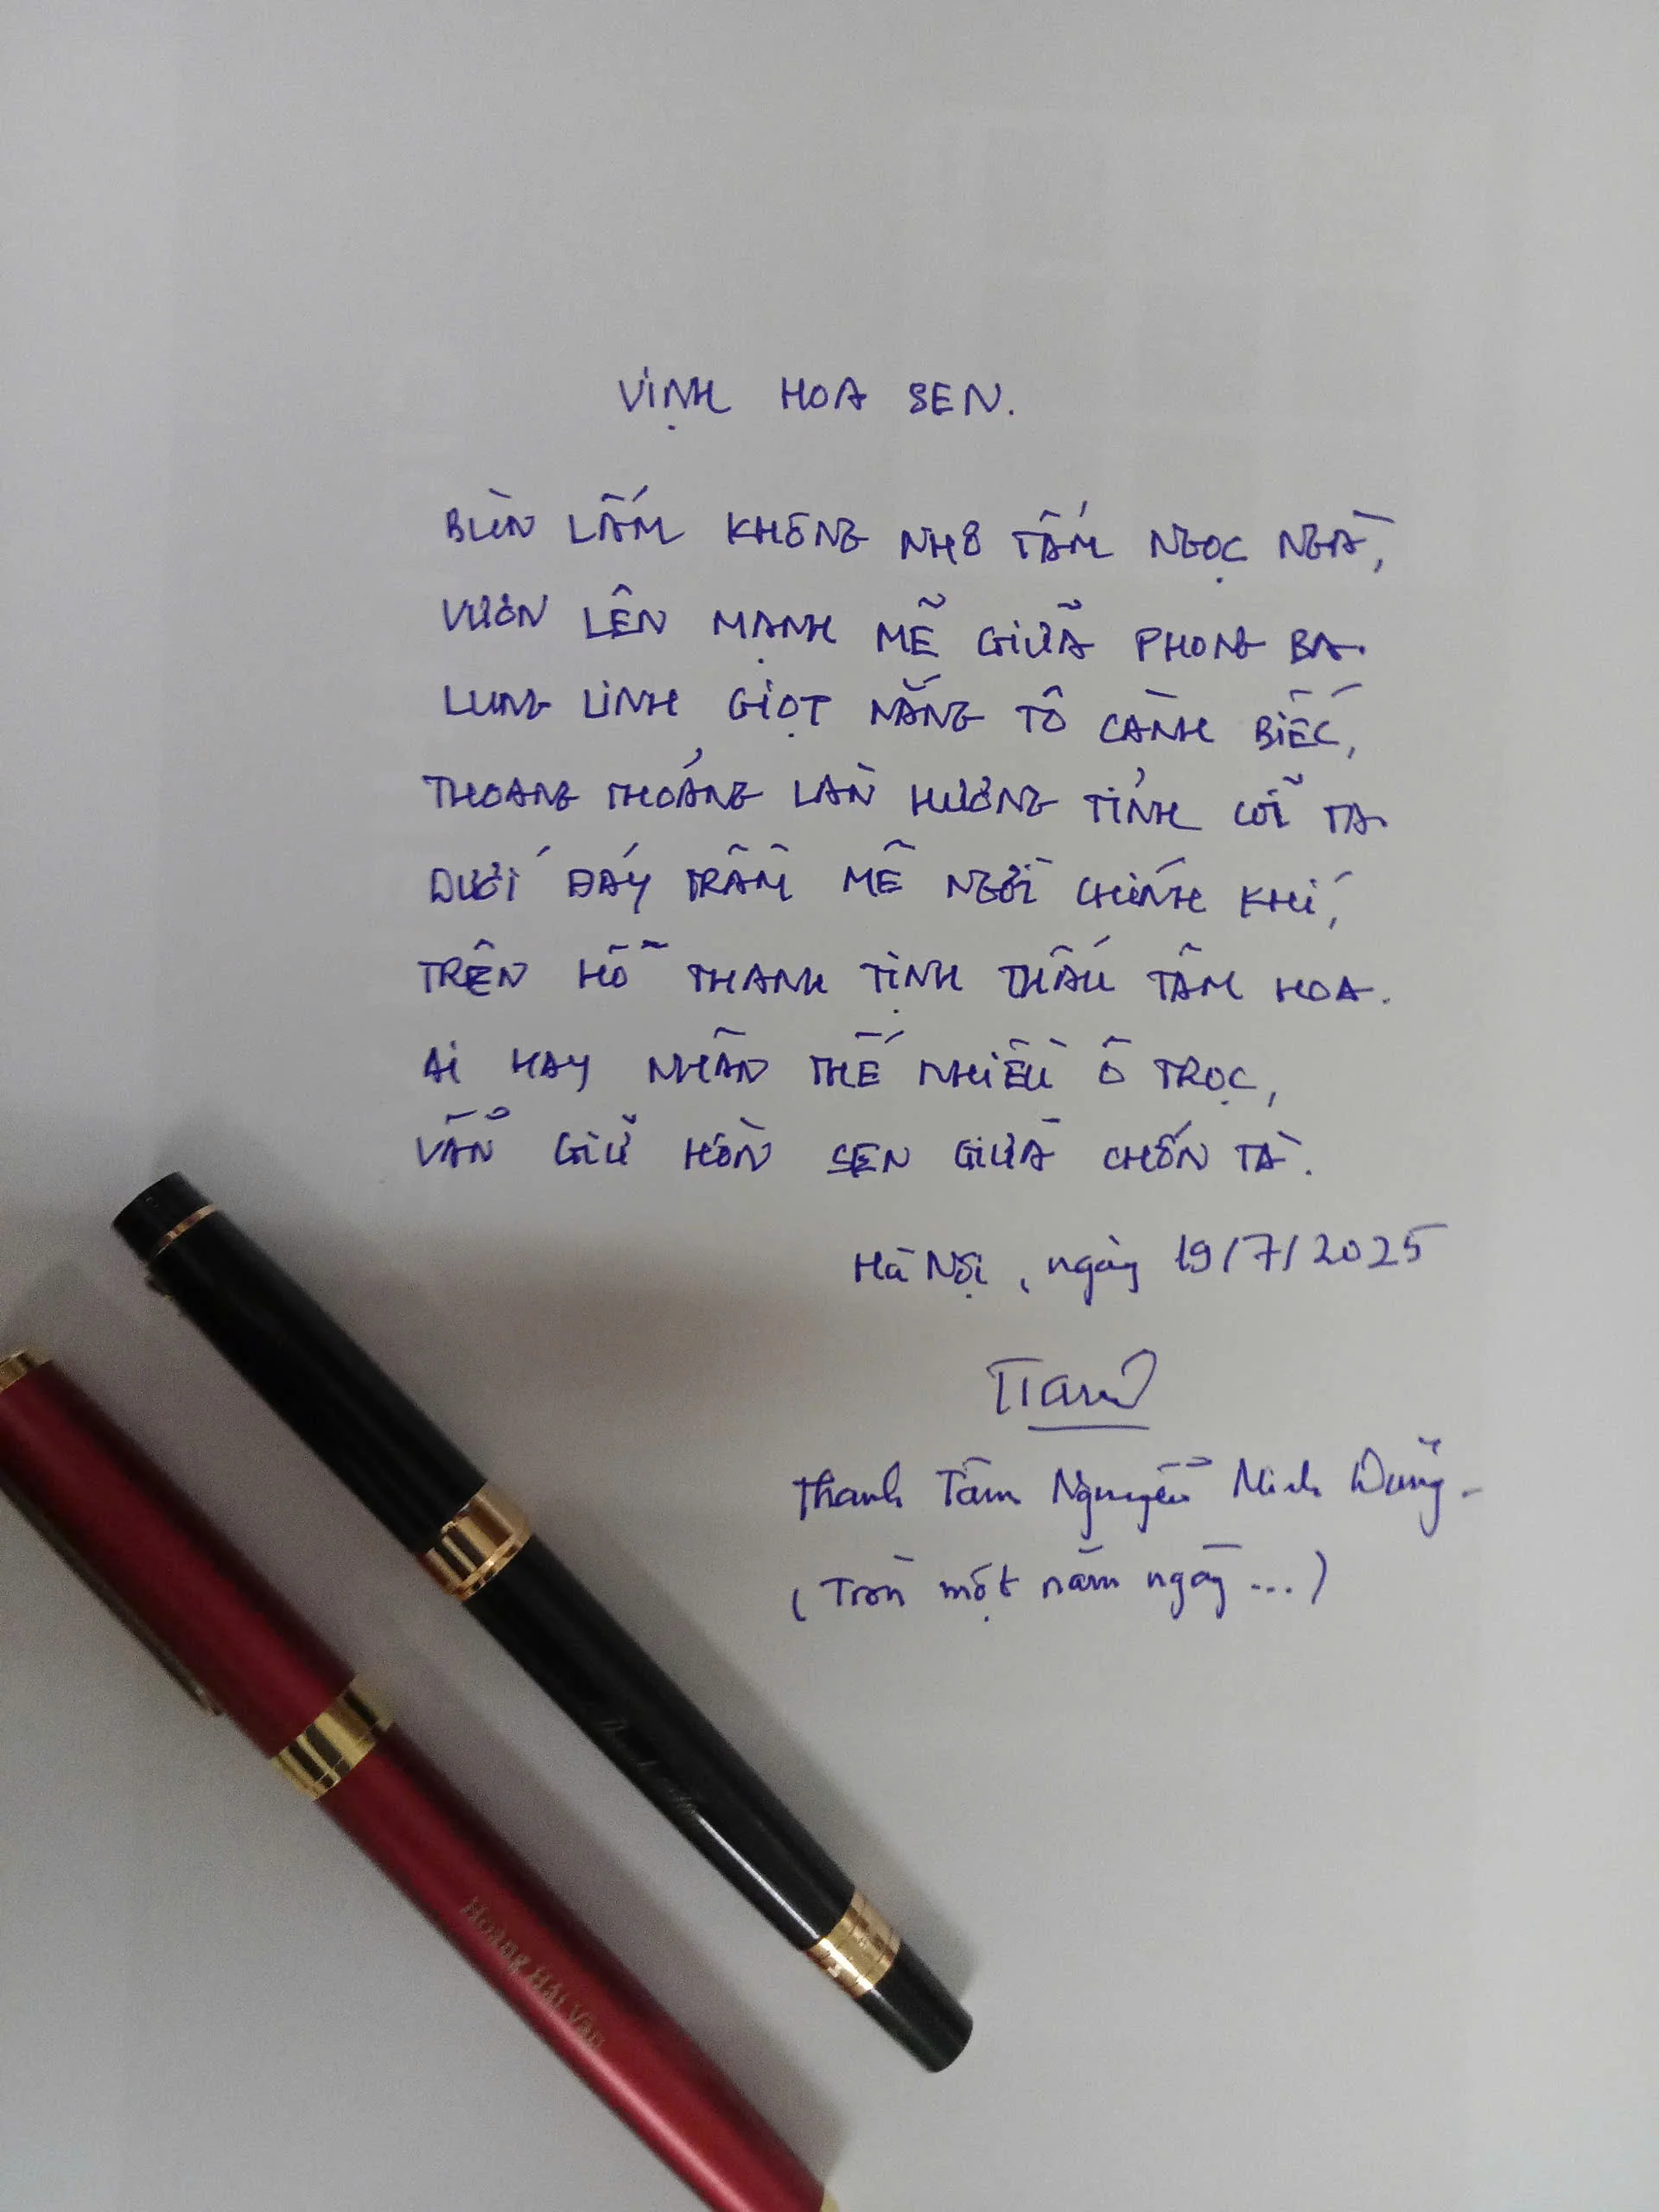 VỊNH HOA SEN.
BÙN LẤM KHÔNG NHƠ TẤM NGỌC NGÀ,
VƯƠN LÊN MẠNH MẼ GIỮA PHONG BA.
LUNG LINH GIỌT NẮNG TÔ CÀNH BIẾC,
THOANG THOẢNG LÀN HƯƠNG TỈNH CÕI TA.
DƯỚI ĐÁY TRẦM MÊ NGỜI CHÍNH KHÍ,
TRÊN HỒ THANH TỊNH THẤU TÂM HOA.
AI HAY NHÂN THẾ NHIỀU Ô TRỌC,
VẪN GIỮ HỒN SEN GIỮA CHỐN TÀ.
Hà Nội, ngày 19/7/2025
Thanh Tâm Nguyễn Minh Dũng.
(Tròn một năm ngày ...)
Hoàng Hải Vân